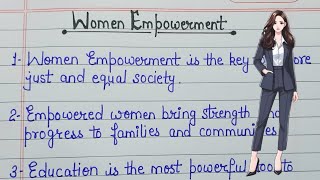 Women Empowerment
1- Women Empowerment is the key ore
just and equal society.
2- Empowered women bring strength and
progress to families and communities
3- Education is the most powerful to